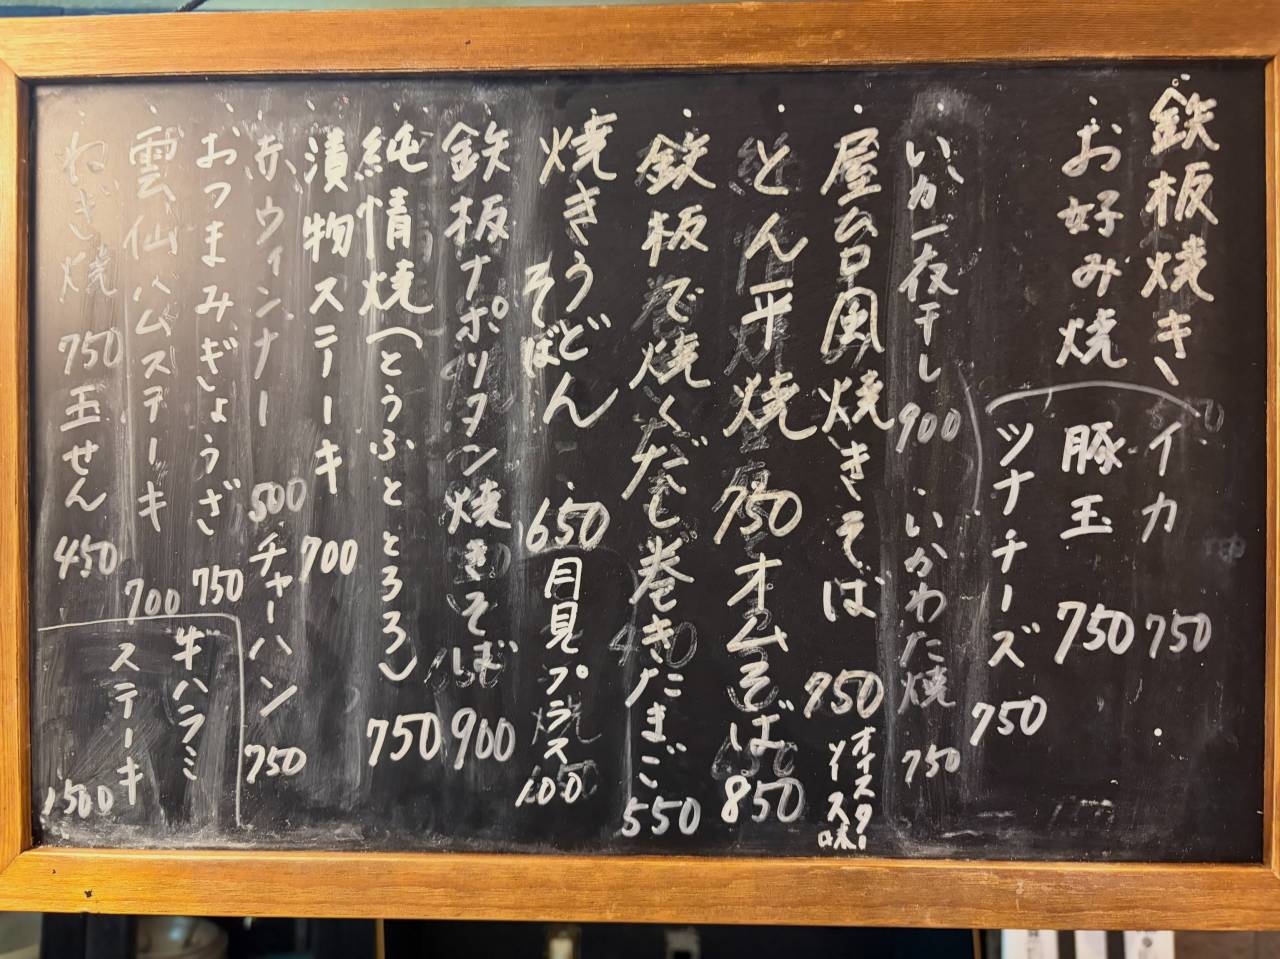 鉄板焼き
イカ 750
・お好み焼
豚玉 750
ツナチーズ 750
・いか一夜干し 900
・いかわた焼 750
・屋台風焼きそば 750
オイスターソース味
・とん平焼 750
オムそば 850
・鉄板で焼くだし巻きたまご 550
・焼きうどん
そば
・650
月見プラス100
・鉄板ナポリタン焼きそば 900
・純情焼(とうふととろろ) 750
・漬物ステーキ 700
・赤ウィンナー 500
・チャーハン 750
・おつまみぎょうざ 750
・雲仙ハムステーキ 700
・ねぎ焼 750
玉せん 450
牛ハラミ
ステーキ
1500